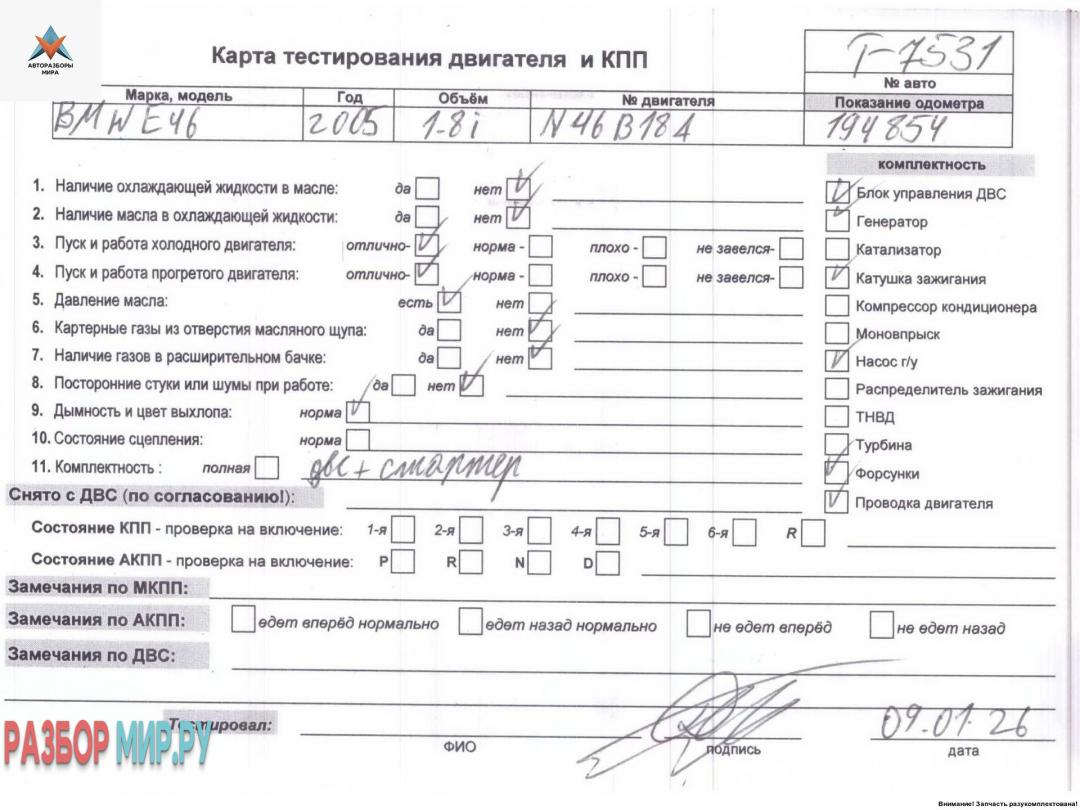 АВТОРАЗБОРЫ
МИРА
Карта тестирования двигателя и КПП
Т-7531
№ авто
Марка, модель Год Объём № двигателя Показание одометра
BMW E46 2005 1.8i N46B18A 194854
комплектность
1. Наличие охлаждающей жидкости в масле: да нет
Блок управления ДВС
2. Наличие масла в охлаждающей жидкости: да нет
Генератор
3. Пуск и работа холодного двигателя: отлично- норма - плохо - не завелся-
Катализатор
4. Пуск и работа прогретого двигателя: отлично- норма - плохо - не завелся-
Катушка зажигания
5. Давление масла: есть нет
Компрессор кондиционера
6. Картерные газы из отверстия масляного щупа: да нет
Моновпрыск
7. Наличие газов в расширительном бачке: да нет
Насос г/у
8. Посторонние стуки или шумы при работе: да нет
Распределитель зажигания
9. Дымность и цвет выхлопа: норма
ТНВД
10. Состояние сцепления: норма
Турбина
11. Комплектность : полная двс + стартер
Форсунки
Снято с ДВС (по согласованию!):
Проводка двигателя
Состояние КПП - проверка на включение: 1-я 2-я 3-я 4-я 5-я 6-я R
Состояние АКПП - проверка на включение: P R N D
Замечания по МКПП:
Замечания по АКПП: едет вперёд нормально едет назад нормально не едет вперёд не едет назад
Замечания по ДВС:
Тестировал:
09.01.26
ФИО подпись дата
РАЗБОРМИР.РУ
Внимание! Запчасть разукомплектована!